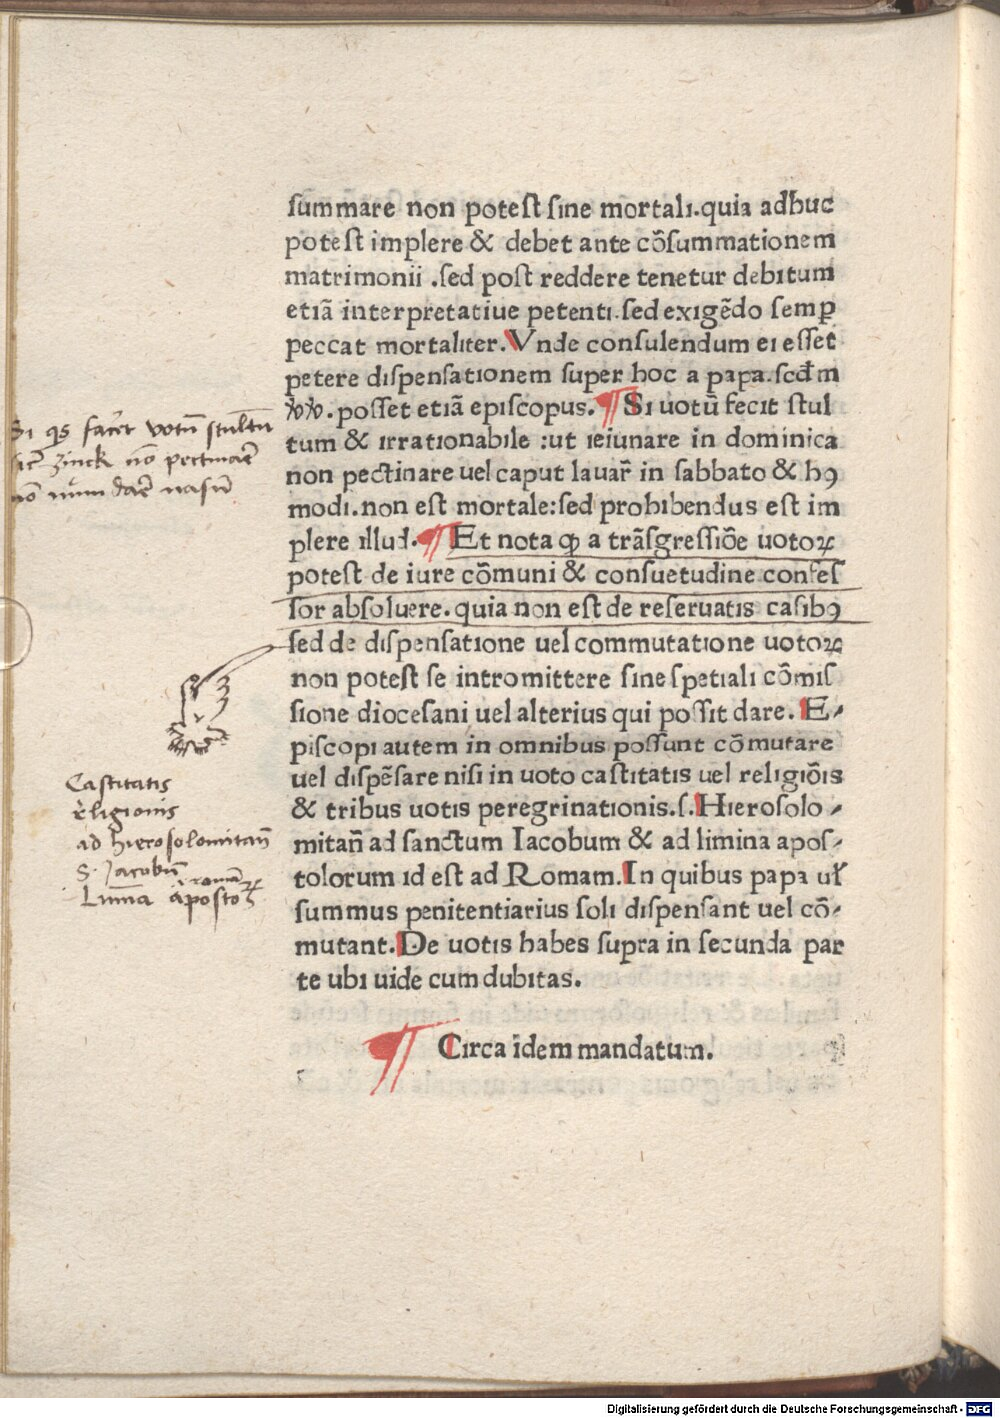 ſummare non poteſt ſine mortali.quia adhuc
poteſt implere & debet ante cõſummationem
matrimonii .ſed poſt reddere tenetur debitum
etiã interpretatiue petenti.ſed exigẽdo ſemꝑ
peccat mortaliter.Vnde conſulendum ei eſſet
petere diſpenſationem ſuper hoc a papa.ſcd̃m
poſſet etiã epiſcopus.¶ Si uotũ fecit ſtul
tum & irrationabile :ut ieiunare in dominica
non pectinare uel caput lauar̃ in ſabbato & hꝯ
modi.non eſt mortale:ſed prohibendus eſt im
plere illud.¶ Et nota ꝙ a trãſgreſſiõe uotoꝝ
poteſt de iure cõmuni & conſuetudine confeſ
ſor abſoluere.quia non eſt de reſeruatis caſibꝯ
ſed de diſpenſatione uel commutatione uotoꝝ
non poteſt ſe intromittere ſine ſpetiali cõmiſ
ſione dioceſani uel alterius qui poſſit dare. E-
piſcopi autem in omnibus poſſunt cõmutare
uel diſpẽſare niſi in uoto caſtitatis uel religiõis
& tribus uotis peregrinationis.ſ.Hieroſolo-
mitañ ad ſanctum Iacobum & ad limina apoſ-
tolorum id eſt ad Romam.In quibus papa uł
ſummus penitentiarius ſoli diſpenſant uel cõ-
mutant.De uotis habes ſupra in ſecunda par
te ubi uide cum dubitas.
¶ Circa idem mandatum.
Si qs facer̃ votũ ſtultũ
nõ pectinar̃
nõ naſũ
Caſtitatis
religionis
ad hieroſolomitañ
S. Jacobũ
Limina apoſtoꝝ
Digitalisierung gefördert durch die Deutsche Forschungsgemeinschaft - DFG